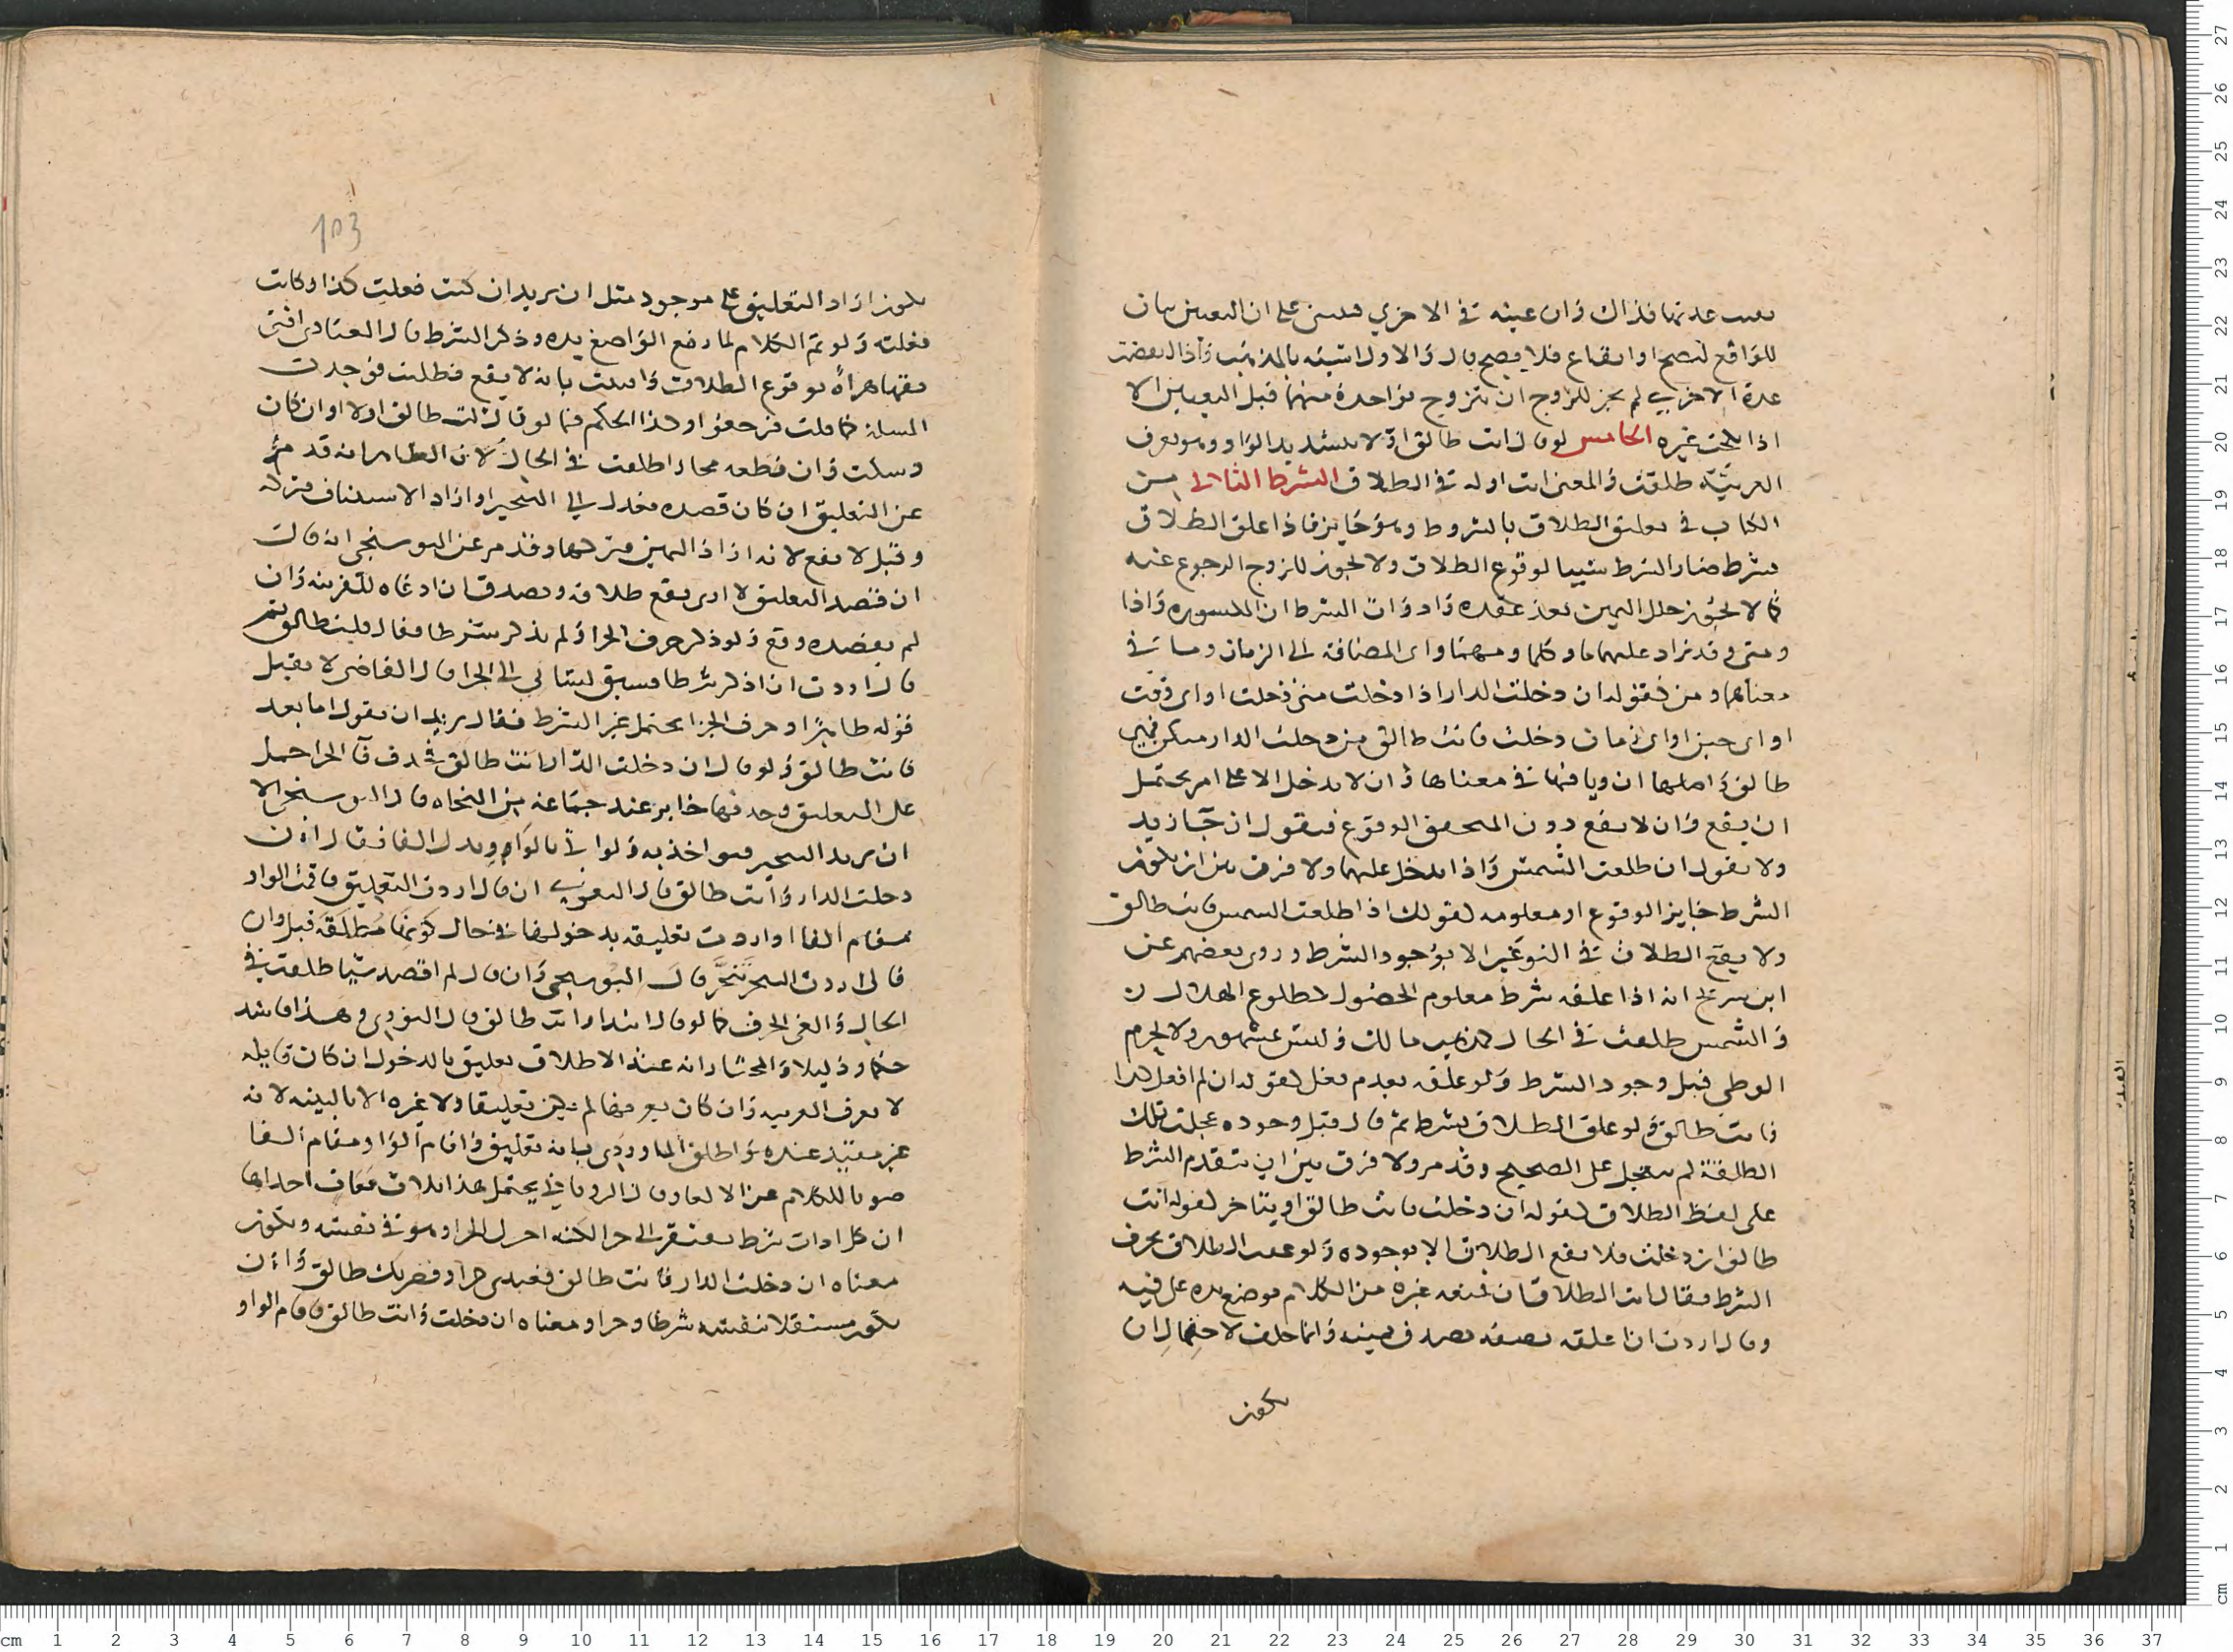 عدتها فذاك وان عينه في الاخرى على ان التعيين بيان
للواقع لتصح او ايقاع فلا يصح قال والاول اشبه بالمذهب واذا انقضت
عدة الاخرى لم يجز للزوج ان يتزوج بواحدة منهما قبل التعيين الا
اذا نكحت غيره الخامس لو قال انت طالق اولا بتشديد الواو وهو يعرف
العربية طلقت والمعنى انت اوله في الطلاق الشرط الثالث من
الكتاب في تعليق الطلاق بالشروط وهو جايز فاذا علق الطلاق
بشرط صار الشرط سببا لوقوع الطلاق ولا يجوز للزوج الرجوع عنه
كما لا يجوز حلل اليمين بعد عقده وادوات الشرط ان المكسورة واذا
ومتى وقد يزاد عليهما ما وكلما ومهما واي المضافة الى الزمان وما في
معناها ومن فقوله ان دخلت الدار اذا دخلت متى دخلت او اي وقت
او اي حين او اي زمان دخلت فانت طالق من دخلت الدار منكن فهي
طالق واصلها ان وباقيها في معناها وان لا يدخل الا على امر يحتمل
ان يقع وان لا يقع دون المتحقق الوقوع فيقول ان جا زيد
ولا يقول ان طلعت الشمس واذا يدخل عليهما ولا فرق بين ان يكون
الشرط جايز الوقوع او معلومه كقولك اذا طلعت الشمس فانت طالق
ولا يقع الطلاق في النوعين الا بوجود الشرط وروى بعضهم عن
ابن سريج انه اذا علقه بشرط معلوم الحصول كطلوع الهلال
والشمس طلقت في الحال كمذهب مالك وليس بمشهور ولا يحرم
الوطي قبل وجود الشرط ولو علقه بعدم فعل كقوله ان لم افعل كذا
فانت طالق ولو علق الطلاق بشرط ثم قال قبل وجوده عجلت تلك
الطلقة لم يتعجل على الصحيح وقد مر ولا فرق بين ان يتقدم الشرط
على لفظ الطلاق كقوله ان دخلت فانت طالق او يتاخر كقوله انت
طالق ان دخلت فلا يقع الطلاق الا بوجوده ولو عقب الطلاق بحرف
الشرط فقال انت الطلاق ان فمنعه غيره من الكلام فوضع يده على فيه
وقال اردت ان اعلقه بصفه يصدق بيمينه وانما حلف لاحتمال ان
يكون
103
يكون اراد التعليق على موجود مثل ان يريد ان كنت فعلت كذا وكانت
فعلته ولو تم الكلام لما رفع الواضع يده وذكر الشرط قال العبادي افتى
فقها هراة بوقوع الطلاق وافتيت بانه لا يقع فطلبت فوجدت
المسلة كما قلت فرجعوا وهذا الحكم فيما لو قال انت طالق اولا او ان كان
وسكت وان قطعه مختارا طلقت في الحال لان الظاهر انه قد
عن التعليق ان كان قصده فعدل الى التنجيز او اراد الاستيناف
وقيل لا يقع لانه اذا اراد اليمين وقد مر عن البوسنجي انه قال
ان قصد التعليق لا ارى يقع طلاقه ويصدق ان ادعاه للقرينه وان
لم يقصده وقع ولو ذكر حرف الجزا ولم يذكر شرطا فقال فانت طالق ثم
قال اردت ان اذكر شرطا فسبق لساني الى الجزا قال القاضي لا يقبل
قوله ظاهرا وحرف الجزا يحتمل غير الشرط فقال يريد ان يقول اما بعد
فانت طالق ولو قال ان دخلت الدار انت طالق بحذف فا الجزا حمل
على التعليق وحذفها جايز عند جماعة من النحاه قال البوسنجي الا
ان يريد التنجيز فيواخذ به ولو اتى بالواو بدل الفا فقال ان
دخلت الدار وانت طالق قال البغوي ان قال اردت التعليق فاقمت الواو
مقام الفا او اردت تعليقه بدخولها في حال كونها مطلقة قبل وان
قال اردت التنجيز تنجز قال البوسنجي وان قال لم اقصد شيا طلقت في
الحال والغي الحرف كما لو قال ابتدا وانت طالق قال النووي وهذا فاسد
حكما ودليلا والمختار انه عند الاطلاق تعليق بالدخول ان كان قايله
لا يعرف العربيه وان كان يعرفها لم يكن تعليقا ولا غيره الا بالنيه لانه
غير مفيد عنده واطلق الماوردي بانه تعليق واقام الواو مقام الفا
صونا للكلام عن الالغا وقال الروياني يحتمل هذا ثلاث معان احداها
ان كل ادات شرط يفتقر الى جزا لكنه اخر الجزا وهو في نفسه ويكون
معناه ان دخلت الدار فانت طالق فعبدي حر او فضرتك طالق وان
يكون مستقلا بنفسه شرطا وجزا ومعناه ان دخلت وانت طالق فاقام الواو